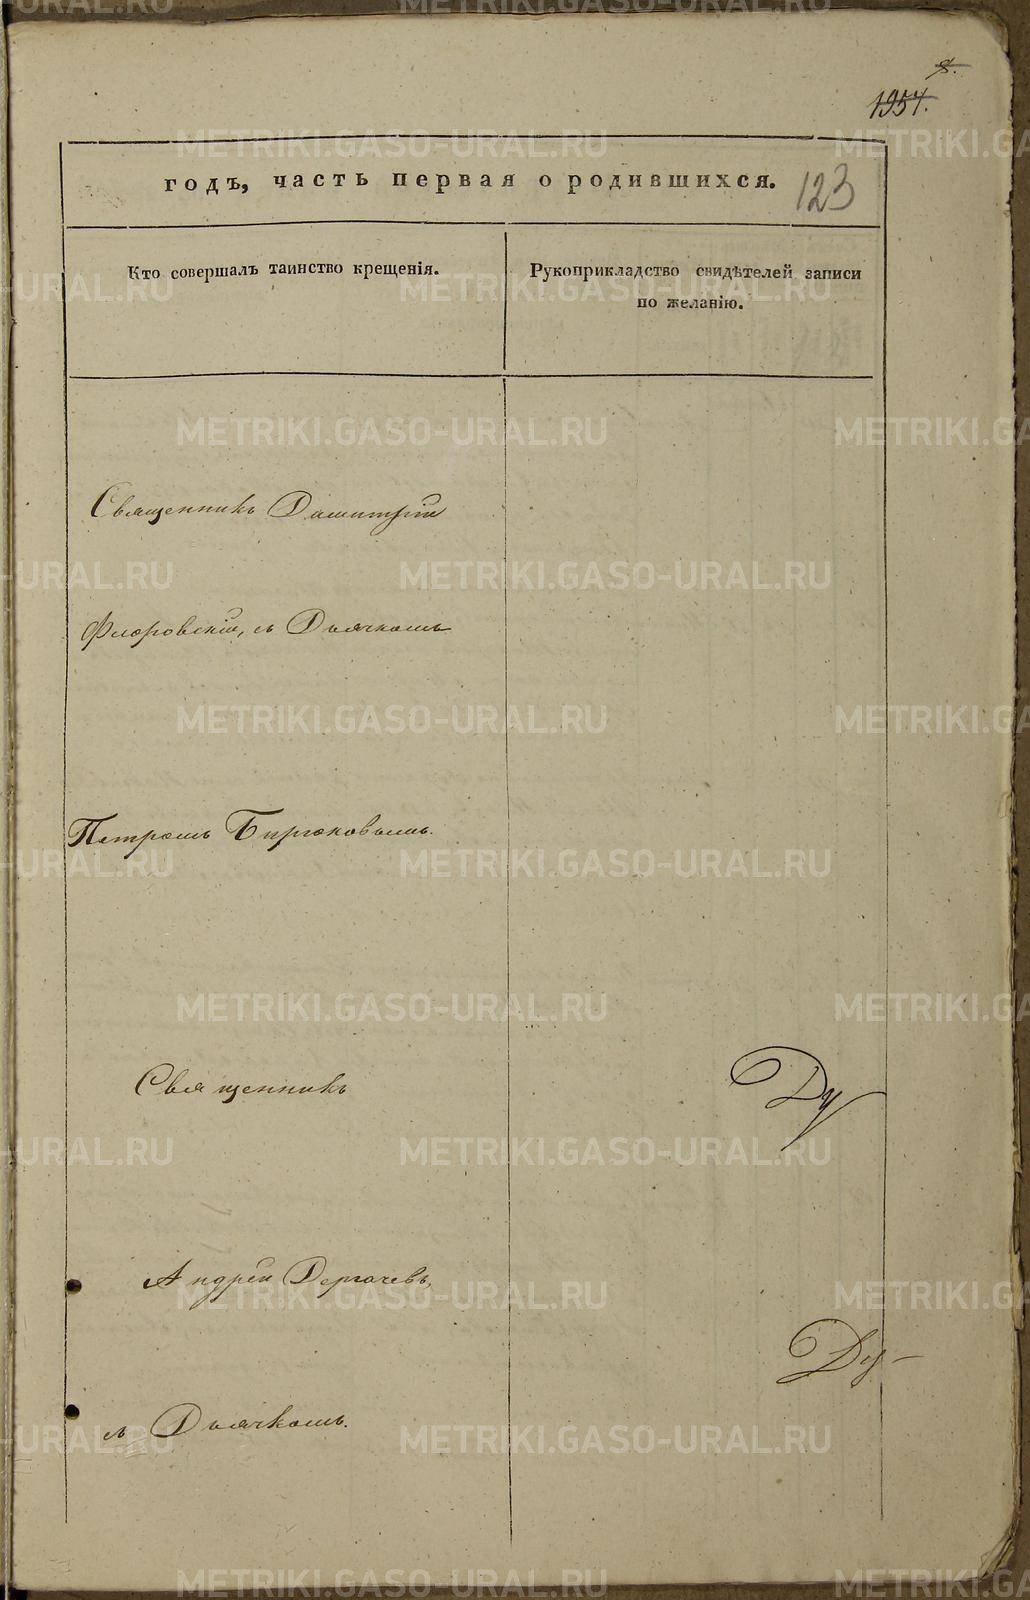 8.
1954.
годъ, часть первая о родившихся. 123
Кто совершалъ таинство крещенія.
Рукоприкладство свидѣтелей записи
по желанію.
Священникъ Димитрій
Флоровскій, съ Дьячкомъ
Петромъ Бирюковымъ.
Священникъ
Андрей Дергачевъ,
съ Дьячкомъ.
METRIKI.GASO-URAL.RU